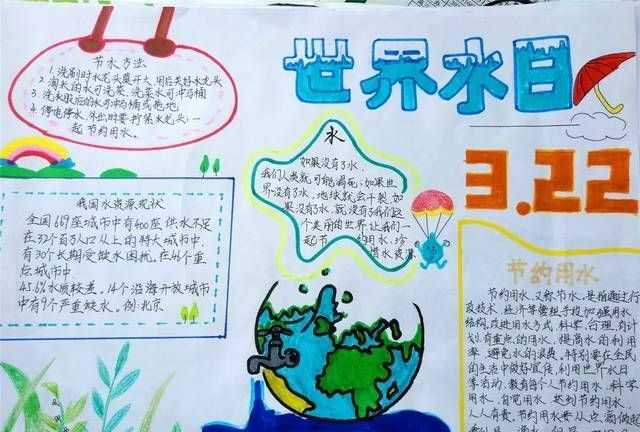 节水方法
1. 洗刷时水龙头莫开大,用后关好水龙头
2. 淘米的水可洗菜,洗菜水可冲马桶
3. 洗衣服后的水可冲马桶或拖地
4. 停电停水,外出时要拧紧水龙头,一
起节约用水。
世界水日
3.22
水
如果没有了水,
我们人类就可能渴死;如果世
界没有了水,地球就会干裂;如
果没有了水,就没有了我们这
个美丽的世界,让我们一
起节约用水,珍
惜水资源
我国水资源现状
全国669座城市中有400座供水不足
在32个百万人口以上的特大城市中,
有30个长期受缺水困扰,在46个重
点城市中
45.6%水质较差,14个沿海开放城市
中有9个严重缺水。例:北京
节约用水
节约用水,又称节水,是指通过行
政技术、经济等管理手段加强用水
结构,改进用水方式,科学、合理、有计
划、有重点的用水,提高水的利用
率,避免水的浪费,特别要在全民
的生活中做好宣传,利用世界水日
等活动,教育每个人节约用水,科学
用水,自觉用水,达到节约用水,
人人有责。节约用水要从点滴做起